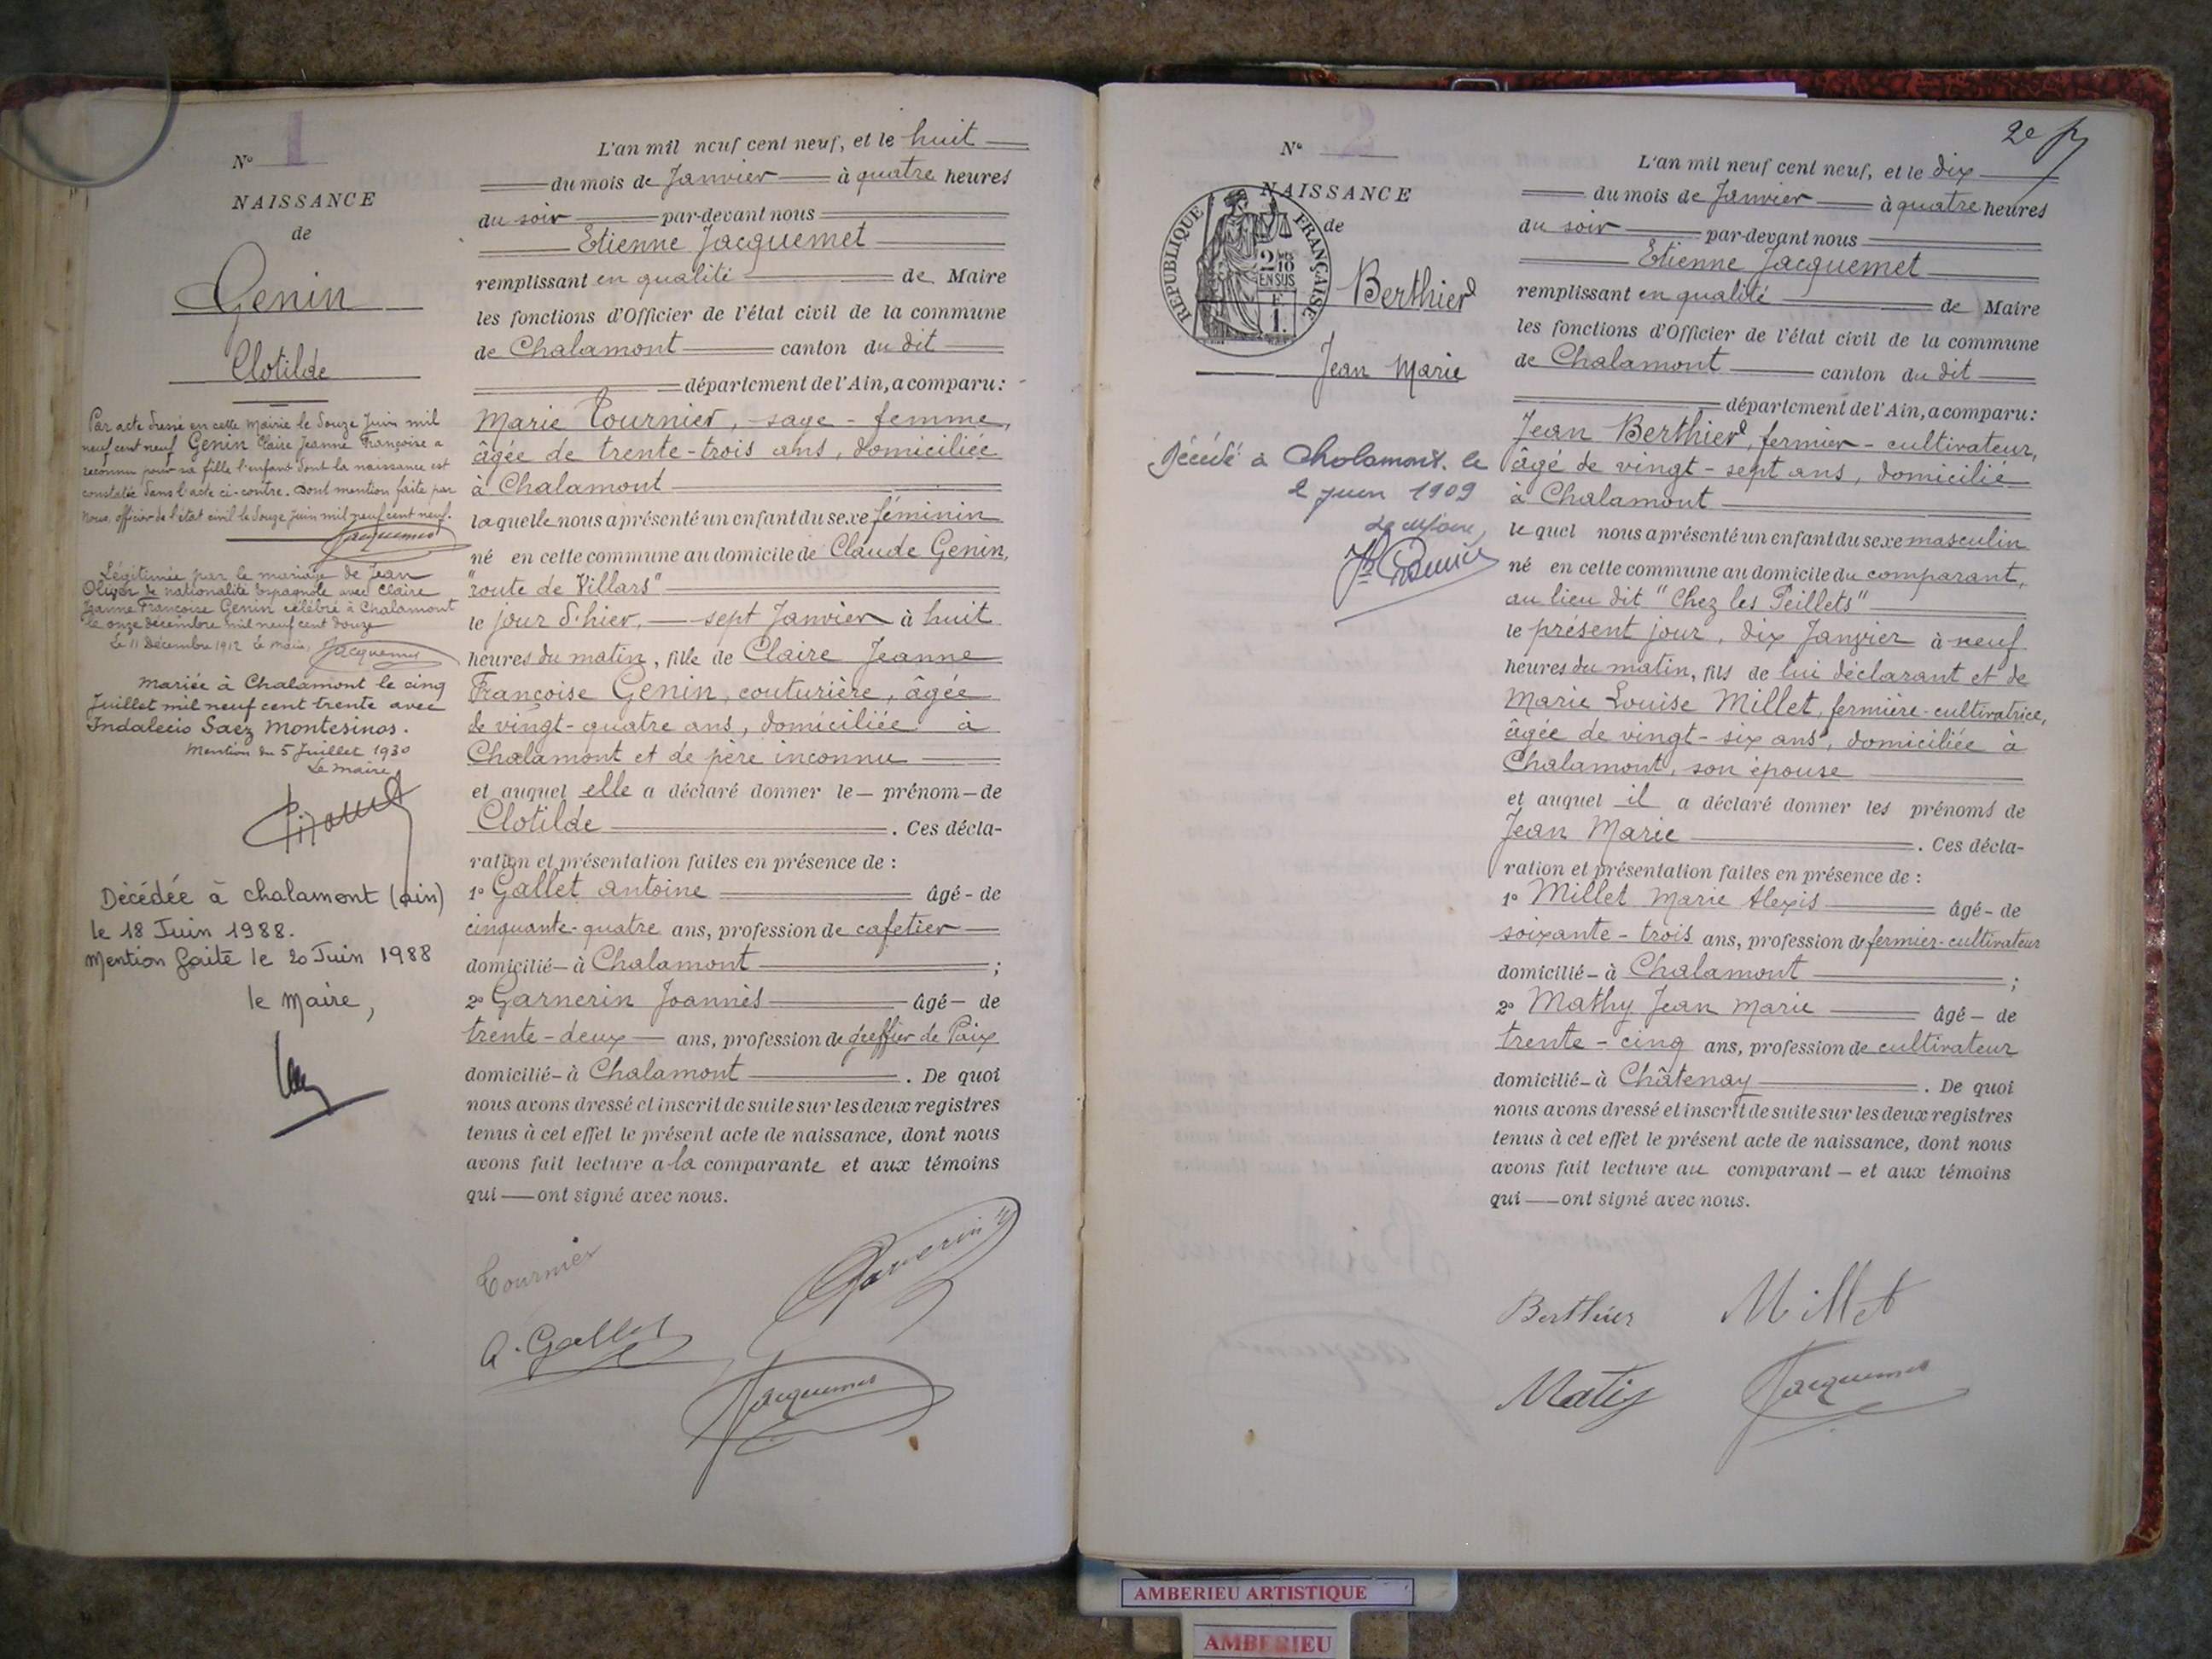 N° 1
NAISSANCE
de
Genin
Clotilde
Par acte dressé en cette Mairie le douze Juin mil
neuf cent neuf Genin Claire Jeanne Françoise a
reconnu pour sa fille l'enfant dont la naissance est
constatée dans l'acte ci-contre. Dont mention faite par
Nous, officier de l'état civil le douze juin mil neuf cent neuf.
Jacquemet
Légitimée par le mariage de Jean
Oliver de nationalité Espagnole avec Claire
Jeanne Françoise Genin célébré à Chalamont
le onze décembre mil neuf cent douze
Le 11 Décembre 1912 Le Maire, Jacquemet
Mariée à Chalamont le cinq
Juillet mil neuf cent trente avec
Indalecio Saez Montesinos.
Mention du 5 Juillet 1930
Le Maire
Décédée à Chalamont (Ain)
le 18 Juin 1988.
Mention faite le 20 Juin 1988
le Maire,
L'an mil neuf cent neuf, et le huit
du mois de Janvier à quatre heures
du soir par-devant nous
Etienne Jacquemet
remplissant en qualité de Maire
les fonctions d'Officier de l'état civil de la commune
de Chalamont canton du dit
département de l'Ain, a comparu:
Marie Tournier, sage-femme,
âgée de trente-trois ans, domiciliée
à Chalamont
laquelle nous a présenté un enfant du sexe féminin
né en cette commune au domicile de Claude Genin,
"route de Villars"
le jour d'hier, sept Janvier à huit
heures du matin, fille de Claire Jeanne
Françoise Genin, couturière, âgée
de vingt-quatre ans, domiciliée à
Chalamont et de père inconnu
et auquel elle a déclaré donner le prénom de
Clotilde. Ces décla-
ration et présentation faites en présence de :
1° Gallet Antoine âgé de
cinquante-quatre ans, profession de cafetier
domicilié à Chalamont ;
2° Garnerin Joannès âgé de
trente-deux ans, profession de greffier de Paix
domicilié à Chalamont. De quoi
nous avons dressé et inscrit de suite sur les deux registres
tenus à cet effet le présent acte de naissance, dont nous
avons fait lecture a la comparante et aux témoins
qui ont signé avec nous.
Tournier
Garnerin
A. Gallet
Jacquemet
2e
N° 2
NAISSANCE
de
REPUBLIQUE FRANÇAISE
2/10
EN SUS
1
Berthier
Jean Marie
Décédé à Chalamont. le
2 juin 1909
Le Maire,
L'an mil neuf cent neuf, et le dix
du mois de Janvier à quatre heures
du soir par-devant nous
Etienne Jacquemet
remplissant en qualité de Maire
les fonctions d'Officier de l'état civil de la commune
de Chalamont canton du dit
département de l'Ain, a comparu:
Jean Berthier, fermier-cultivateur,
âgé de vingt-sept ans, domicilié
à Chalamont
lequel nous a présenté un enfant du sexe masculin
né en cette commune au domicile du comparant,
au lieu dit "Chez les Peillets"
le présent jour, dix Janvier à neuf
heures du matin, fils de lui déclarant et de
Marie Louise Millet, fermière-cultivatrice,
âgée de vingt-six ans, domiciliée à
Chalamont, son épouse
et auquel il a déclaré donner les prénoms de
Jean Marie. Ces décla-
ration et présentation faites en présence de :
1° Millet Marie Alexis âgé de
soixante-trois ans, profession de fermier-cultivateur
domicilié à Chalamont ;
2° Mathy Jean Marie âgé de
trente-cinq ans, profession de cultivateur
domicilié à Châtenay. De quoi
nous avons dressé et inscrit de suite sur les deux registres
tenus à cet effet le présent acte de naissance, dont nous
avons fait lecture au comparant et aux témoins
qui ont signé avec nous.
Berthier Millet
Matis Jacquemet
AMBERIEU ARTISTIQUE
AMBERIEU